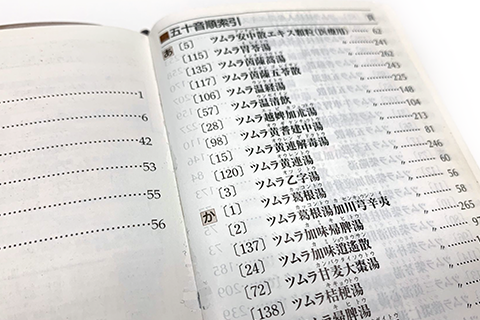 1
6
42
53
55
56
五十音順索引 頁
あ [5] ツムラ安中散エキス顆粒(医療用) …… 62
[115] ツムラ胃苓湯 〃 …… 241
[135] ツムラ茵蔯蒿湯 〃 …… 262
[117] ツムラ茵蔯五苓散 〃 …… 243
[106] ツムラ温経湯 〃 …… 225
[57] ツムラ温清飲 〃 …… 148
[28] ツムラ越婢加朮湯 〃 …… 104
[98] ツムラ黄耆建中湯 〃 …… 213
[15] ツムラ黄連解毒湯 〃 …… 81
[120] ツムラ黄連湯 〃 …… 246
[3] ツムラ乙字湯 〃 …… 60
か [1] ツムラ葛根湯 〃 …… 56
[2] ツムラ葛根湯加川芎辛夷 〃 …… 58
[137] ツムラ加味帰脾湯 〃 …… 265
[24] ツムラ加味逍遙散 〃 …… 97
[72] ツムラ甘麦大棗湯 〃
[138] ツムラ桔梗湯 〃
ツムラ帰脾湯